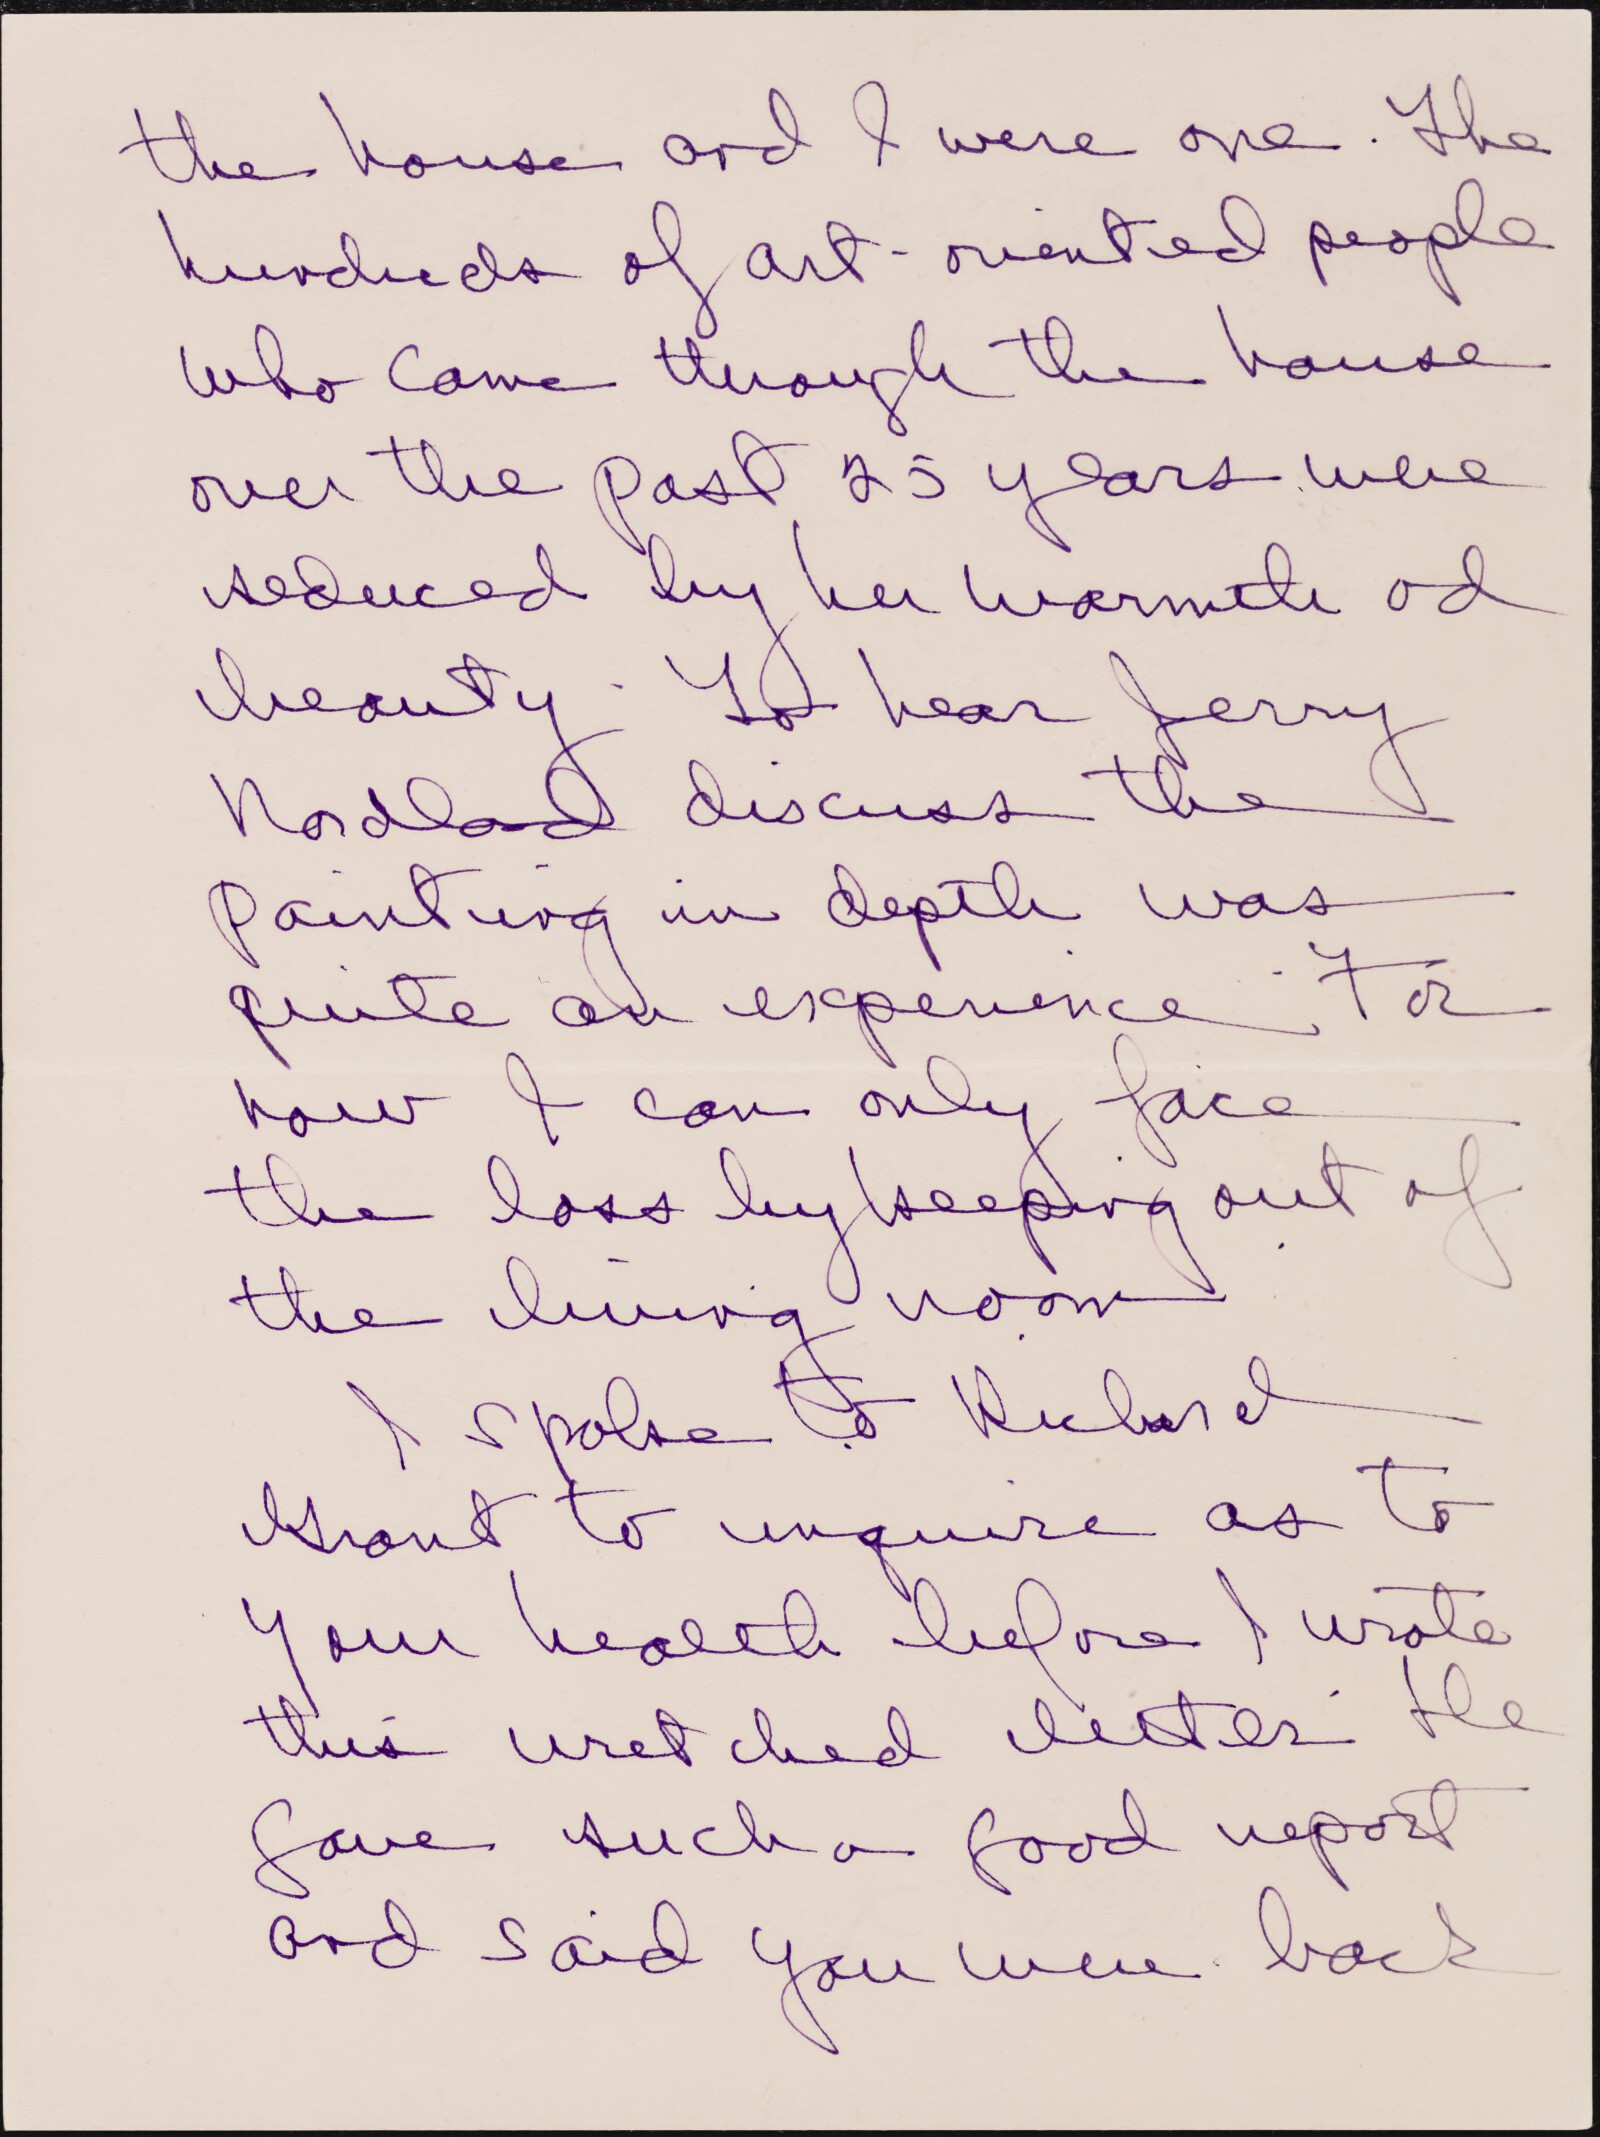 the house and I were one. The
hundreds of art-oriented people
who came through the house
over the past 25 years were
seduced by her warmth and
beauty. To hear Jerry
Nordland discuss the
painting in depth was
quite an experience. For
now I can only face
the loss by keeping out of
the living room.
I spoke to Richard
Grant to inquire as to
your health before I wrote
this wretched letter. He
gave such a good report
and said you were back